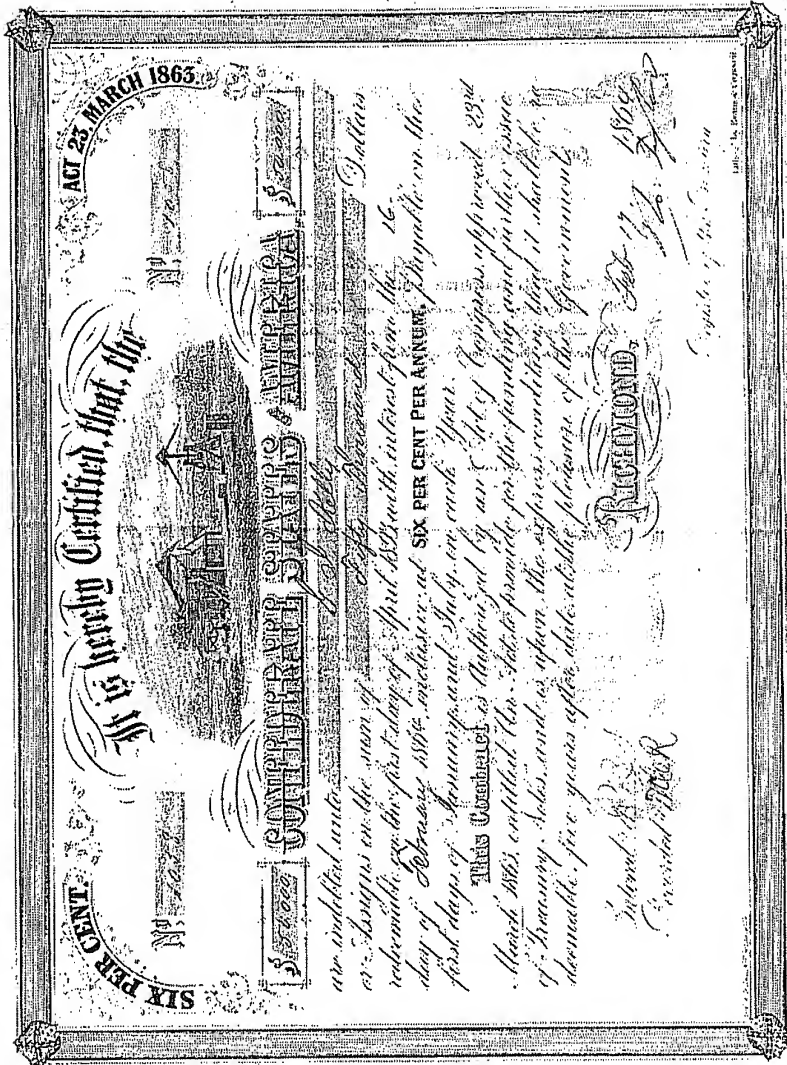 SIX PER CENT.
ACT 23, MARCH 1863.
It is hereby Certified, that, the
Nº
Nº
$ 50,000
CONFEDERATE STATES OF AMERICA
$ 50,000
are indebted unto
or Assigns in the sum of Fifty thousand Dollars
redeemable on the first day of April 1868, with interest from the 16
day of February 1864 inclusive at SIX PER CENT PER ANNUM, Payable on the
first days of January and July in each Year.
This Contract is Authorized by an Act of Congress approved 23rd
March 1863, entitled An Act to provide for the funding and further issue
of Treasury Notes, and is upon the express condition, that it shall be re
deemable five years after date at the pleasure of the Government.
RICHMOND, Feb 17 1864
Entered
Recorded
Register of the Treasury